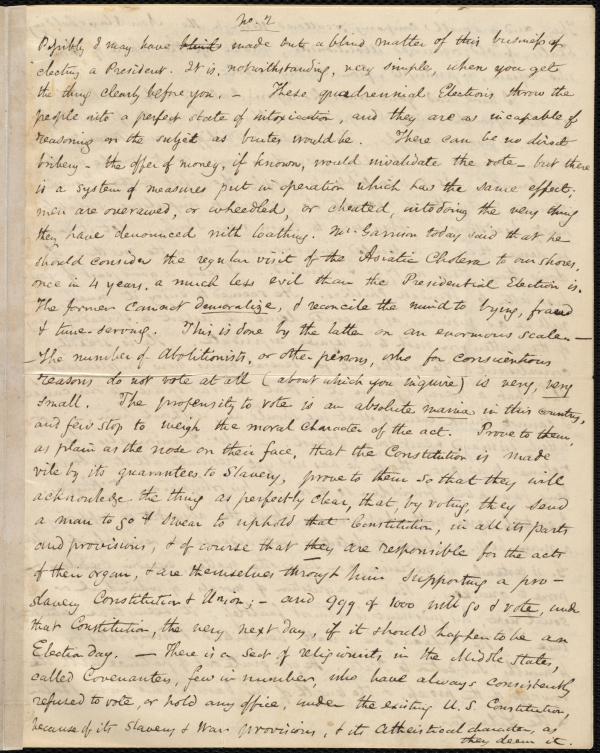 no. 2
Possibly I may have blinds made but a blind matter of this business of
electing a President. It is, notwithstanding, very simple, when you get
the thing clearly before you. – These quadrennial Elections throw the
people into a perfect state of intoxication, and they are as incapable of
reasoning on the subject as brutes would be. There can be no direct
bribery – the offer of money, if known, would invalidate the vote – but there
is a system of measures put in operation which has the same effect;
men are overawed, or wheedled, or cheated, into doing the very thing
they have denounced with loathing. Mr. Garrison today said that he
should consider the regular visit of the Asiatic Cholera to our shores,
once in 4 years, a much less evil than the Presidential Election is.
The former cannot demoralize, & reconcile the mind to lying, fraud
& time-serving. This is done by the latter on an enormous scale. –
– The number of Abolitionists, or other persons, who for conscientious
reasons do not vote at all (about which you inquire) is very, very
small. The propensity to vote is an absolute mania in this country,
and few stop to weigh the moral character of the act. Prove to them,
as plain as the nose on their face, that the Constitution is made
vile by its guarantees to Slavery, prove to them so that they will
acknowledge the thing as perfectly clear, that, by voting, they send
a man to go & swear to uphold that Constitution, in all its parts
and provisions, & of course that they are responsible for the acts
of their organ, & are themselves through him supporting a pro-
slavery Constitution & Union; – and 999 of 1000 will go & vote, under
that Constitution, the very next day, if it should happen to be an
Election day. – There is a sect of religionists, in the Middle States,
called Covenanters, few in number, who have always consistently
refused to vote, or hold any office, under the existing U.S. Constitution,
because of its Slavery & War provisions, & its Atheistical character, as
they deem it.